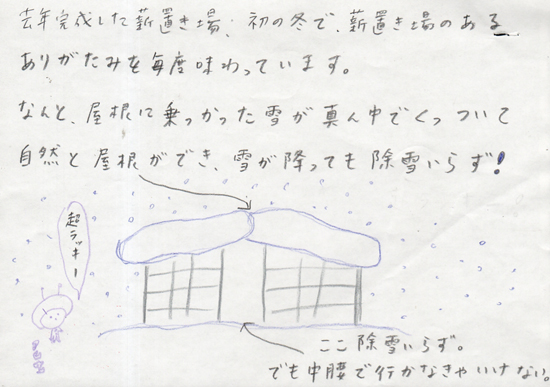 去年完成した薪置き場、初の冬で、薪置き場のある
ありがたみを毎度味わっています。
なんと、屋根に乗っかった雪が真ん中でくっついて
自然と屋根ができ、雪が降っても除雪いらず!
超ラッキー
ここ除雪いらず。
でも中腰で行かなきゃいけない。